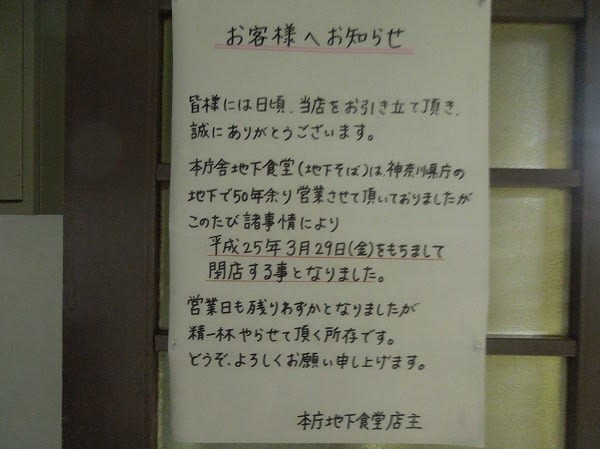 お客様へお知らせ
皆様には日頃、当店をお引き立て頂き、
誠にありがとうございます。
本庁舎地下食堂(地下そば)は、神奈川県庁の
地下で50年余り営業させて頂いておりましたが
このたび諸事情により
平成25年3月29日(金)をもちまして
閉店する事となりました。
営業日も残りわずかとなりましたが
精一杯やらせて頂く所存です。
どうぞ、よろしくお願い申し上げます。
本庁地下食堂店主